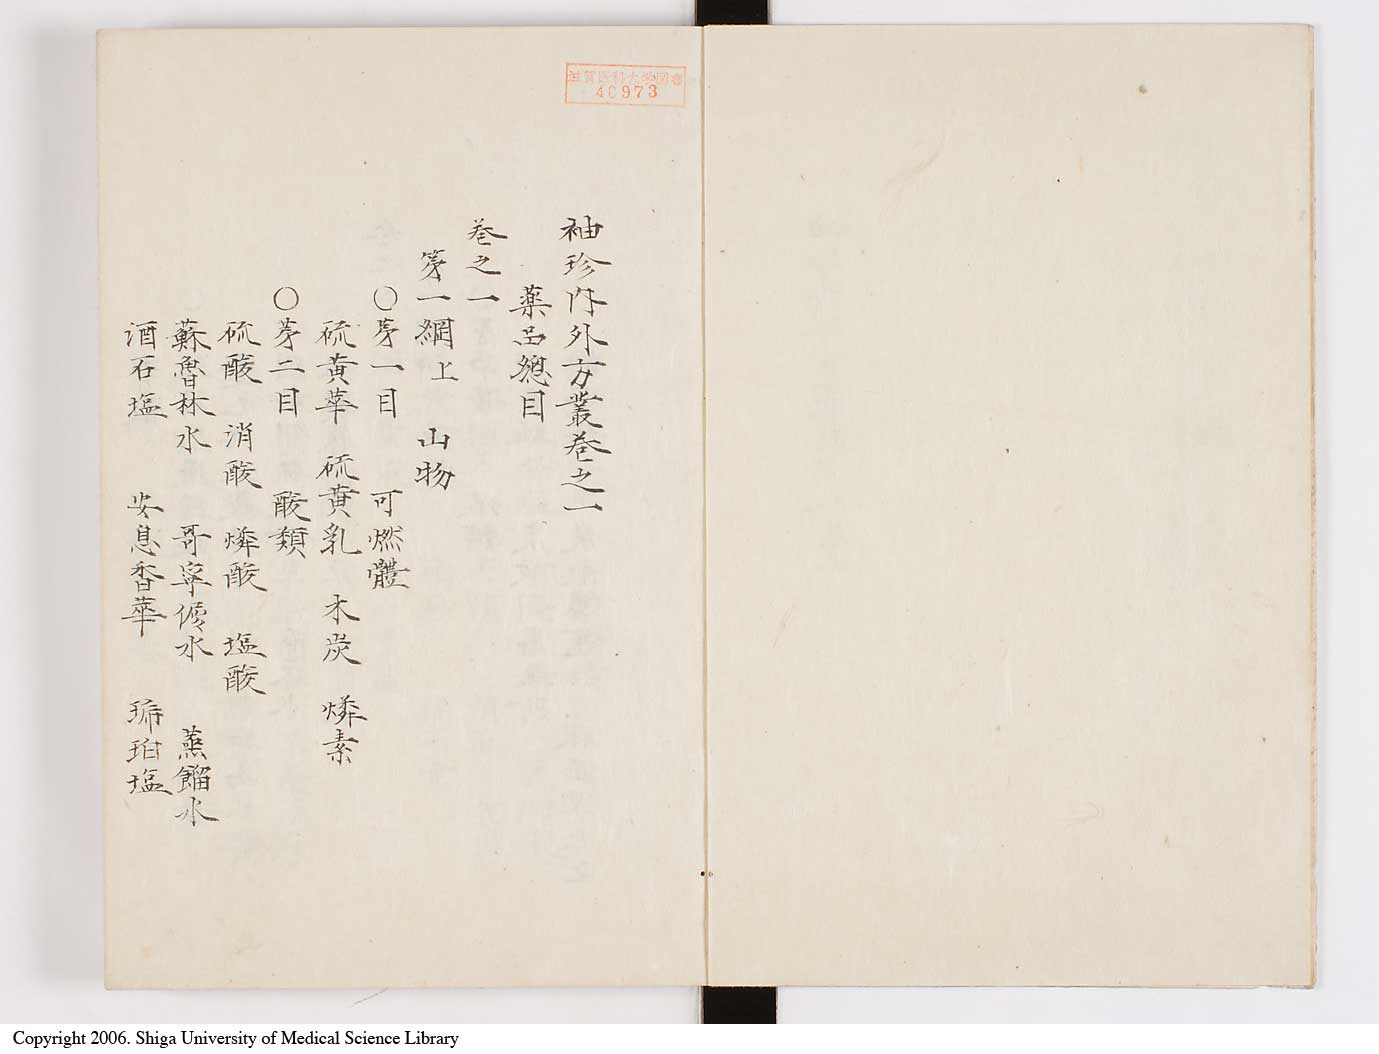 滋賀医科大学図書
40973
袖珍内外方叢巻之一
薬品總目
巻之一
第一綱上 山物
〇第一目 可燃體
硫黄華 硫黄乳 木炭 燐素
〇第二目 酸類
硫酸 消酸 燐酸 塩酸
蘇魯林水 哥寧 水 蒸餾水
酒石塩 安息香華 琥珀塩
Copyright 2006. Shiga University of Medical Science Library